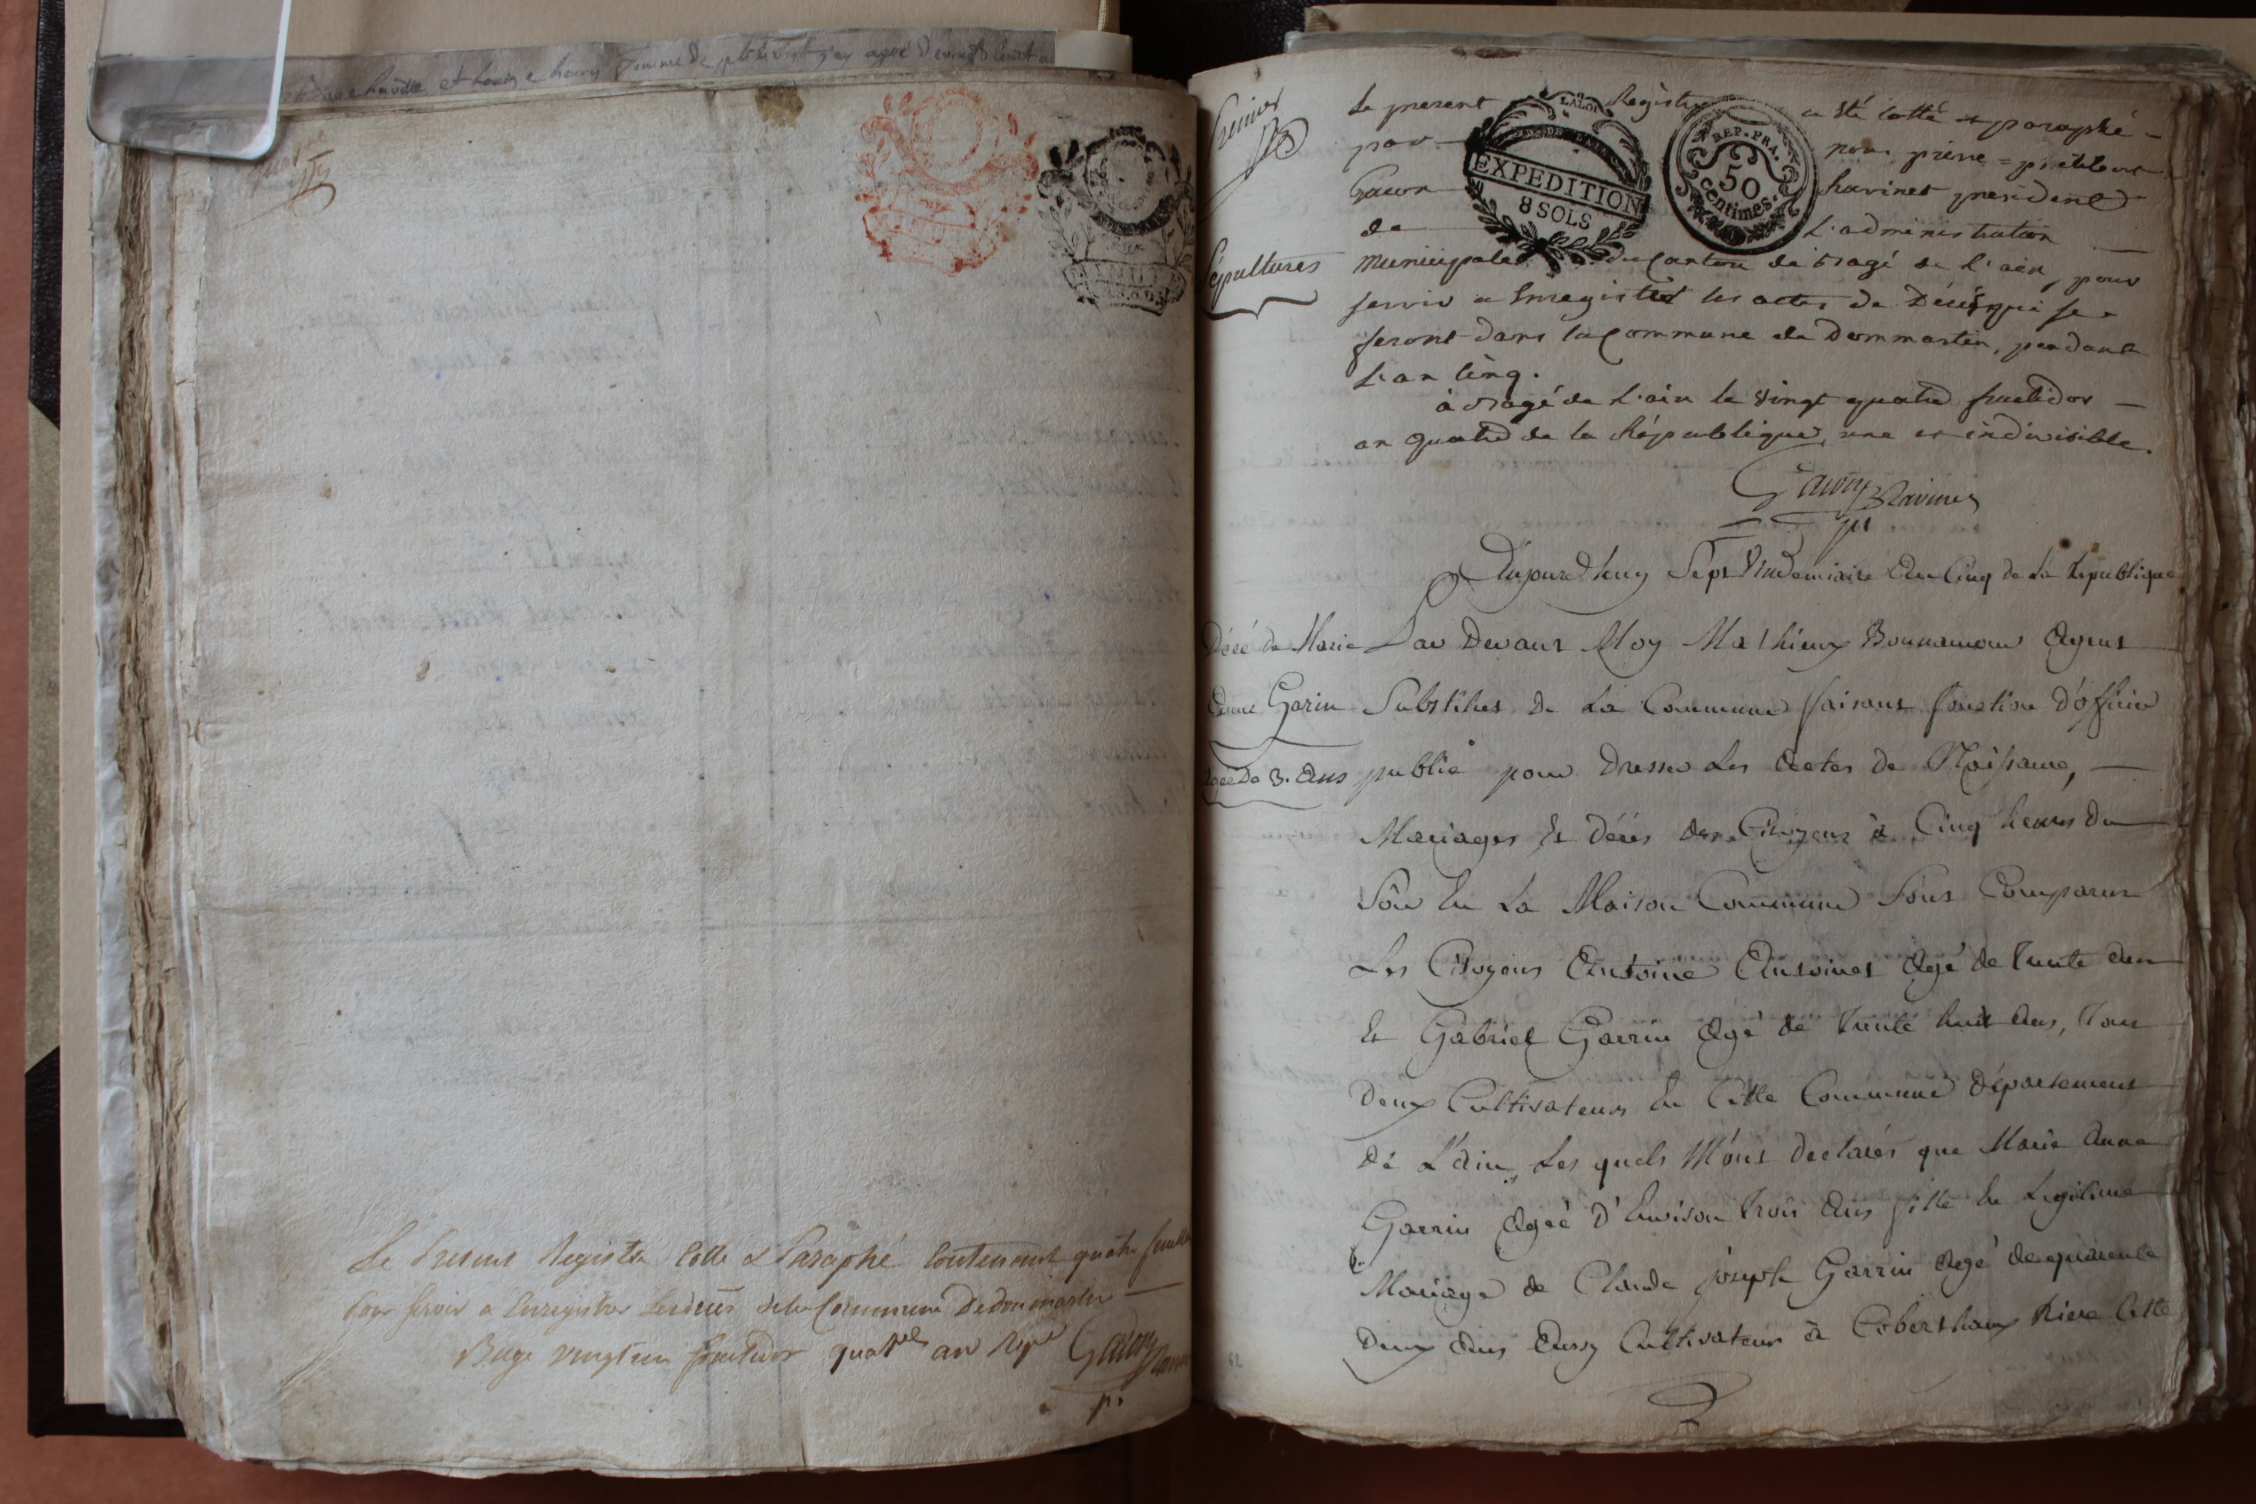 quatre
Le Present Registre Cotte & Paraphé Contenant quatre feuillets
pour servir a Enregistrer les décès de la Commune de dommartin
Bage vingt un fructidor quatre an Rep
Gacon
p.
Premier
Le present Registre a été cotté et paraphé
par nous pierre
Gacon havinet president
de L'administration
Sépultures
Municipale du Canton de Bagé de L'ain, pour
servir a Enregistrer les actes de Décès qui se
feront dans la Commune de Dommartin, pendant
L'an Cinq.
à Bagé de L'ain le vingt quatre fructidor
an quatre de la République, une et indivisible.
Gacon
EXPEDITION
8 SOLS
REP. FRA.
50
centimes.
Aujourd'huy Sept Vindemiaire L'an Cinq de La Republique
Décé de Marie
Anne Garin
agée De 3. Ans
Par Devant Moy Mathieux Bonnamour Agent
Substitut De La Commune faisant fonction D'officier
public pour Dresser Les Actes de Naissance,
Mariages Et Décès des Citoyens à Cinq heures Du
Soir En La Maison Commune Sont Comparus
Les Citoyens Antoine Antoinet Agé de Trente ans
Et Gabriel Garrin Agé de Trente huit Ans, Tous
Deux Cultivateurs En Cette Commune Département
De L'Ain, Les quels M'ont Declarés que Marie Anne
Garrin Ageé D'Environ Trois Ans fille En Legitime
Mariage de Claude joseph Garrin Agé de quarente
Deux Ans Aussy Cultivateur à Cette
62